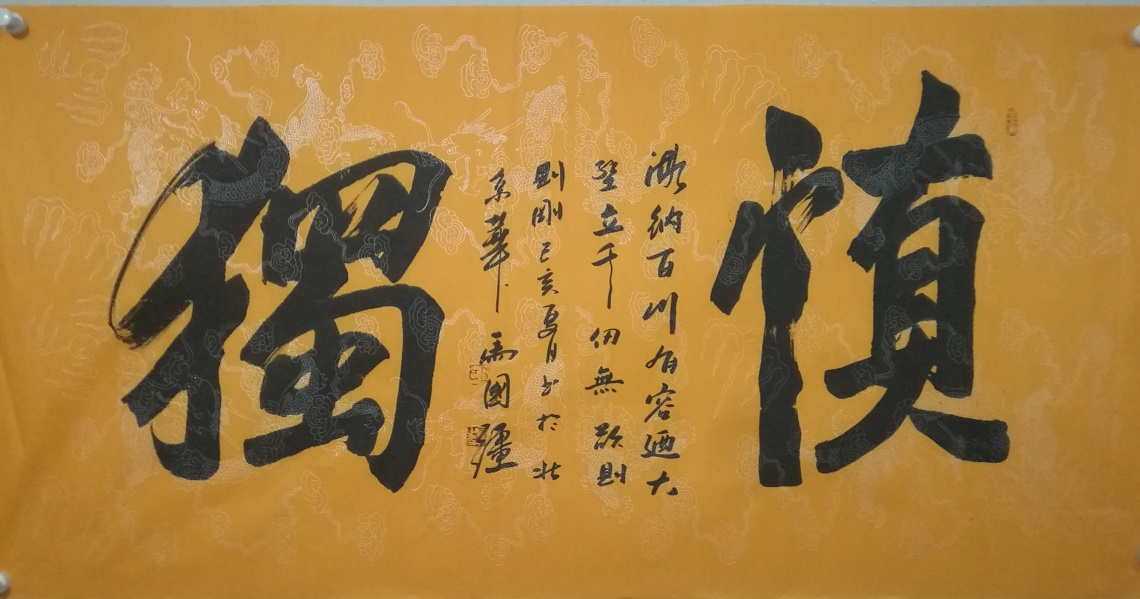 慎
海納百川有容廼大
壁立千仞無欲則
則剛己亥夏月书於北
京華馬國疆
獨